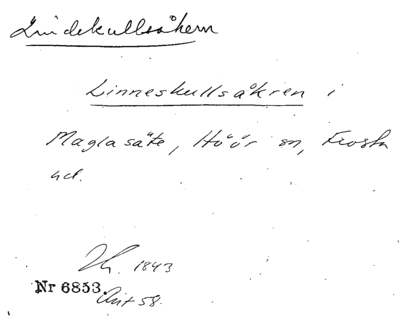 Lindekullsåkern
Linneskullsåkren i
Maglasäte, Höör sn, Frosta
hd.
1843
Nr 6853.
58.